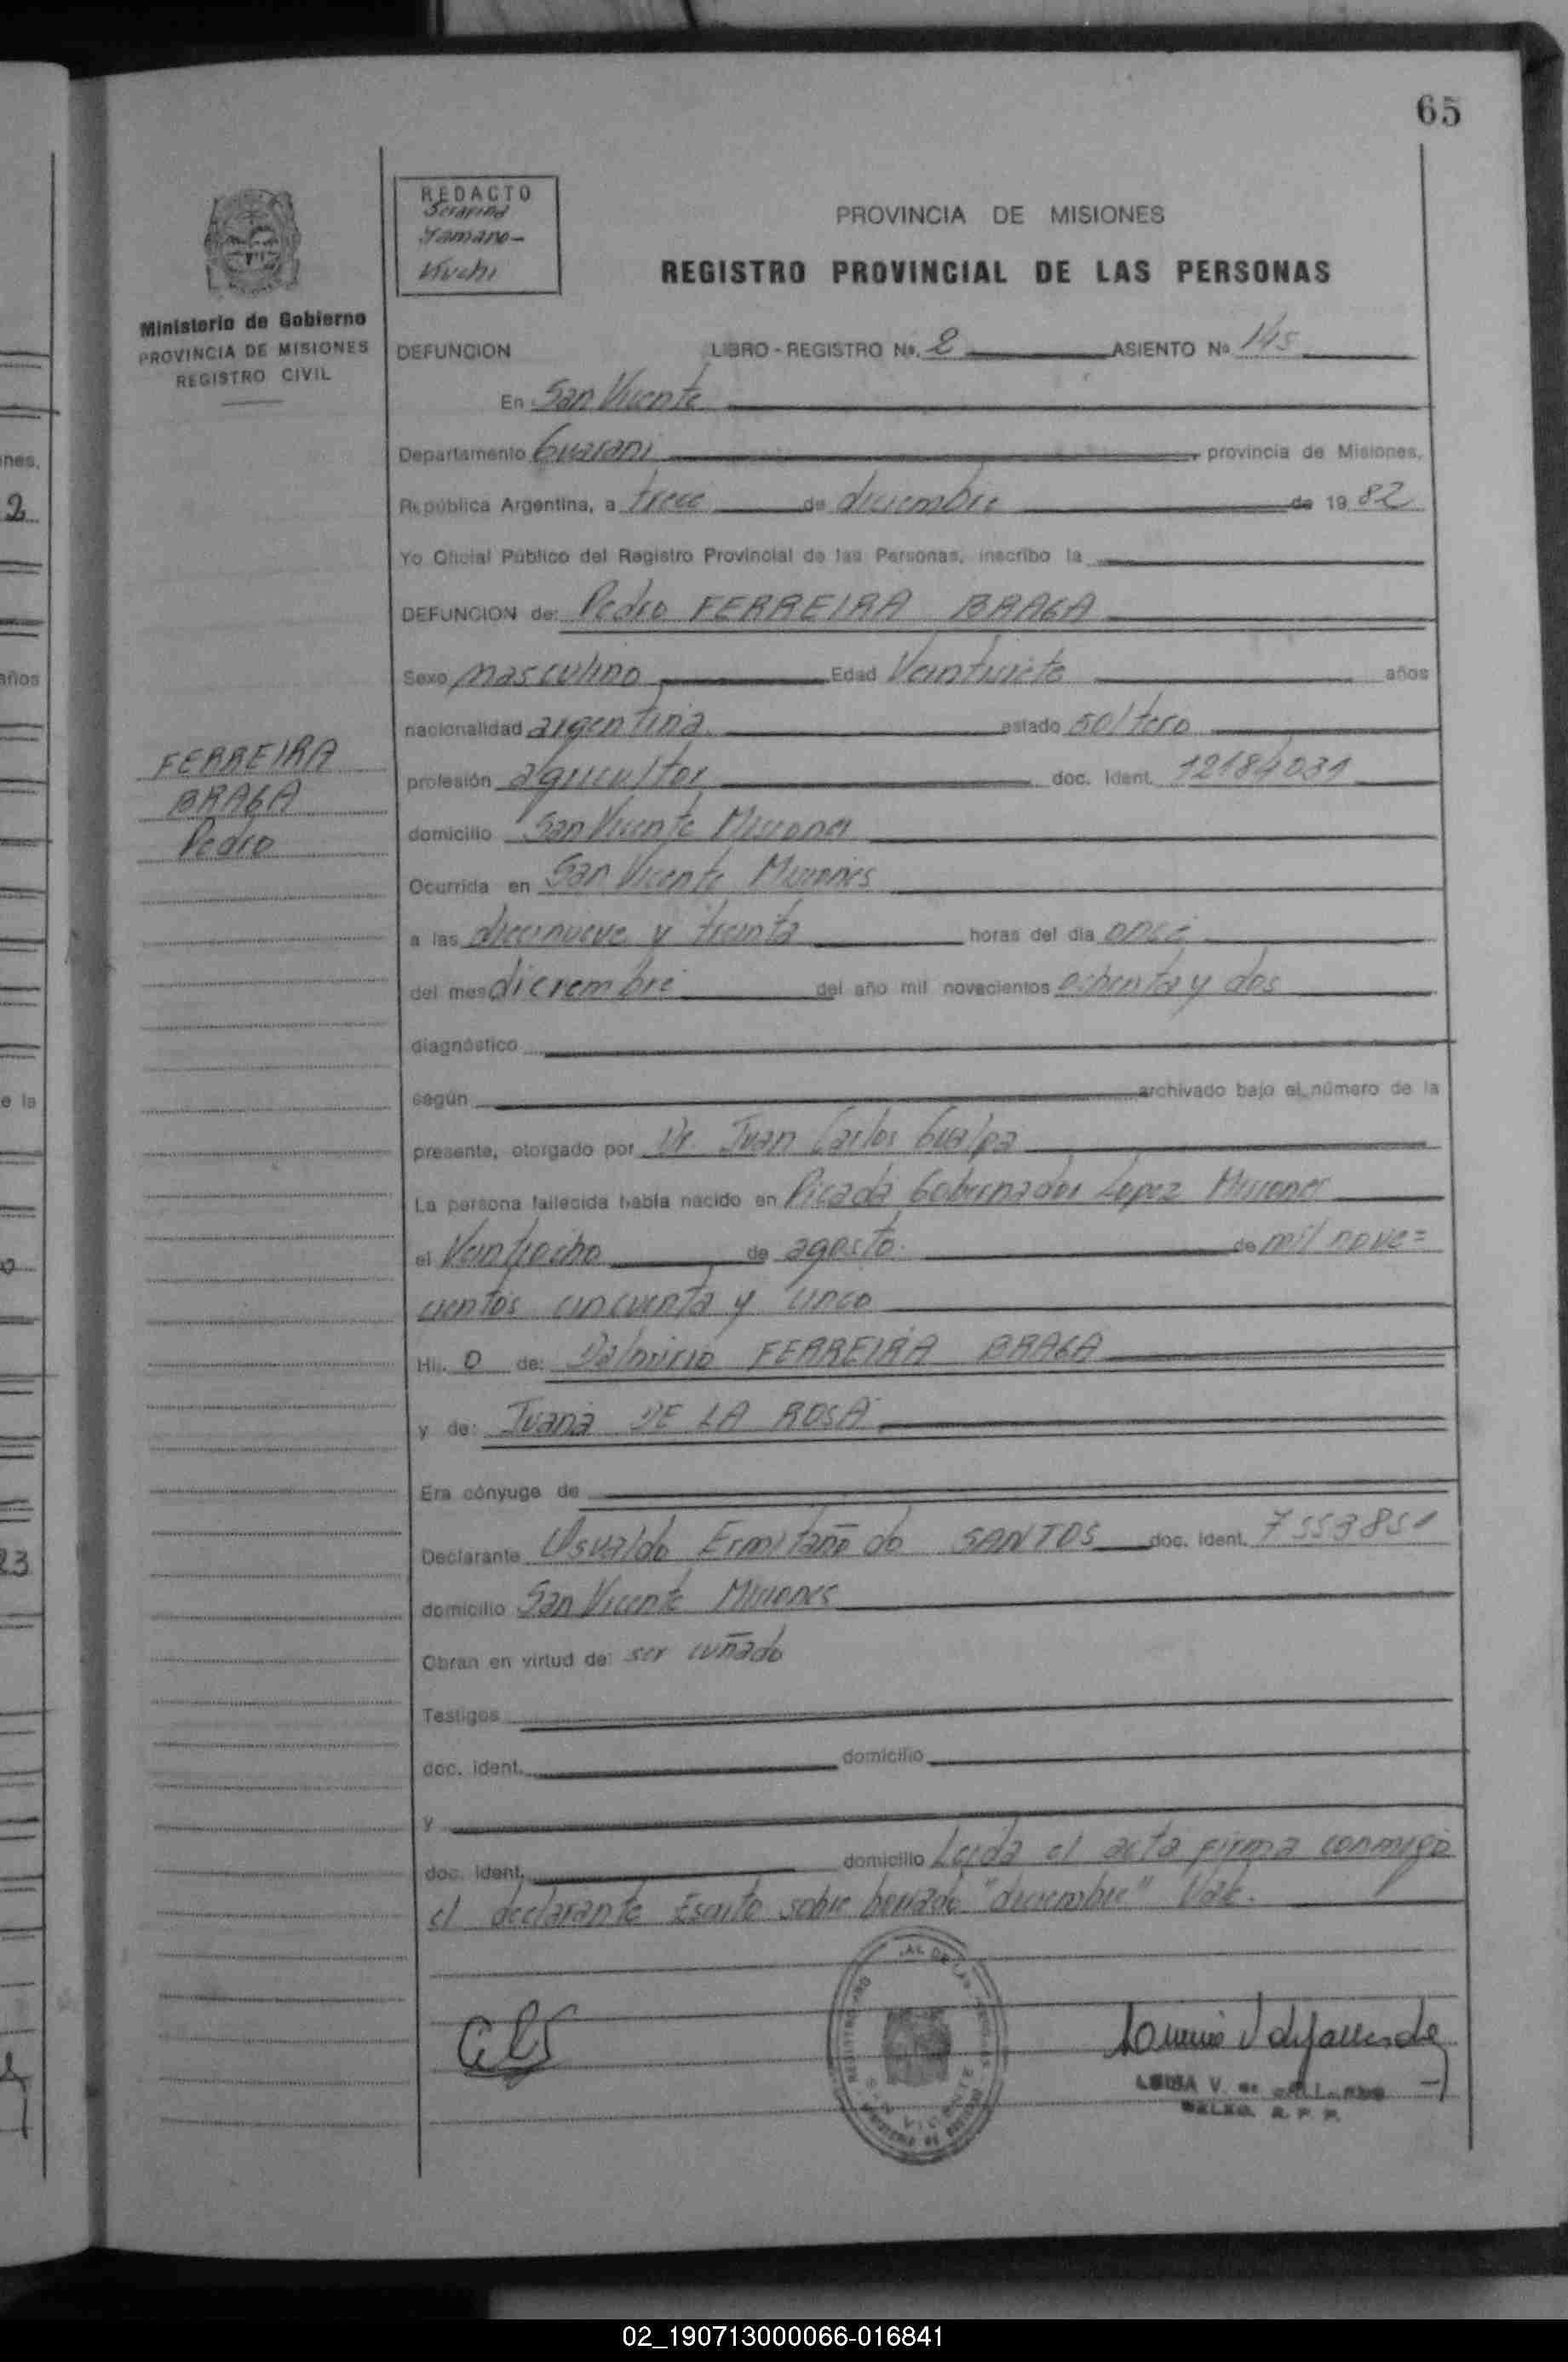 65
REDACTO
Serafina
Yamano-
Kiuchi
PROVINCIA DE MISIONES
REGISTRO PROVINCIAL DE LAS PERSONAS
Ministerio de Gobierno
PROVINCIA DE MISIONES
REGISTRO CIVIL
DEFUNCION LIBRO - REGISTRO No. 2 ASIENTO No 145
En San Vicente
Departamento Guarani provincia de Misiones,
República Argentina, a trece de diciembre de 1982
Yo Oficial Público del Registro Provincial de las Personas, inscribo la
DEFUNCION de: Pedro FERREIRA BRAGA
Sexo masculino Edad Veintisiete años
nacionalidad argentina estado soltero
FERREIRA
BRAGA
Pedro
profesión agricultor doc. ident. 12184031
domicilio San Vicente Misiones
Ocurrida en San Vicente Misiones
a las diecinueve y treinta horas del día once
del mes diciembre del año mil novecientos ochenta y dos
diagnóstico
según archivado bajo el número de la
presente, otorgado por Dr. Juan Carlos Gualpa
La persona fallecida había nacido en Picada Gobernador Lopez Misiones
el Veintiocho de agosto de mil nove=
cientos cincuenta y cinco
Hij. o de: Dalmiro FERREIRA BRAGA
y de: Juana DE LA ROSA
Era cónyuge de
Declarante Osvaldo Ermitaño do SANTOS doc. ident. 7553851
domicilio San Vicente Misiones
Obran en virtud de: ser cuñado
Testigos
doc. ident. domicilio
y
doc. ident. domicilio Leida el acta firma conmigo
el declarante Escrito sobre borrado "diciembre" Vale.
nes,
2
años
e la
23
02_190713000066-016841